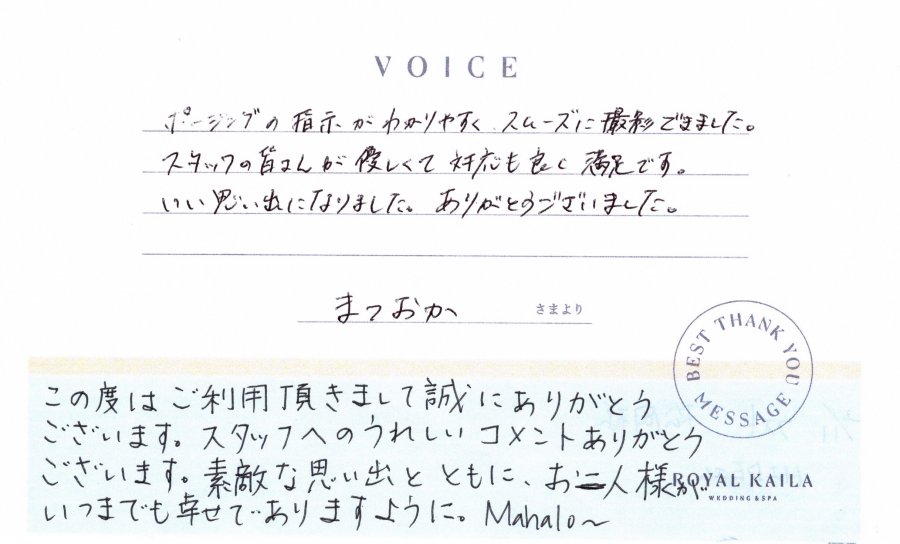 VOICE
ポージングの指示がわかりやすく、スムーズに撮影できました。
スタッフの皆さんが優しくて対応も良く満足です。
いい思い出になりました。ありがとうございました。
まつおか さまより
BEST THANK YOU MESSAGE
この度はご利用頂きまして誠にありがとう
ございます。スタッフへのうれしいコメントありがとう
ございます。素敵な思い出とともに、お二人様が
ROYAL KAILA
WEDDING & SPA
いつまでも幸せでありますように。Mahalo〜